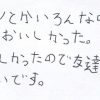 ノとかいろんなの
おいしかった。
しかったので友達
いです。